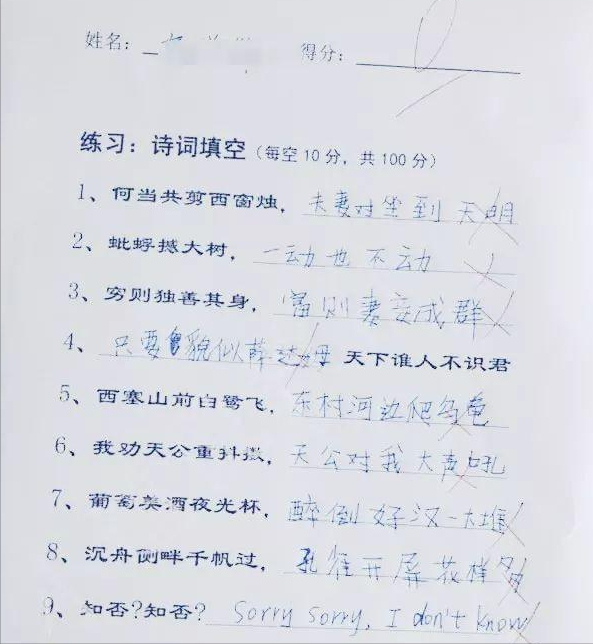 姓名：
得分：
练习：诗词填空（每空10分，共100分）
1、何当共剪西窗烛，夫妻对坐到天明
2、蚍蜉撼大树，一动也不动
3、穷则独善其身，富则妻妾成群
4、只要貌似薛达母 天下谁人不识君
5、西塞山前白鹭飞，东村河边爬乌龟
6、我劝天公重抖擞，天公对我大声吼
7、葡萄美酒夜光杯，醉倒好汉一大堆
8、沉舟侧畔千帆过，孔雀开屏花样多
9、知否?知否? Sorry sorry, I don't know